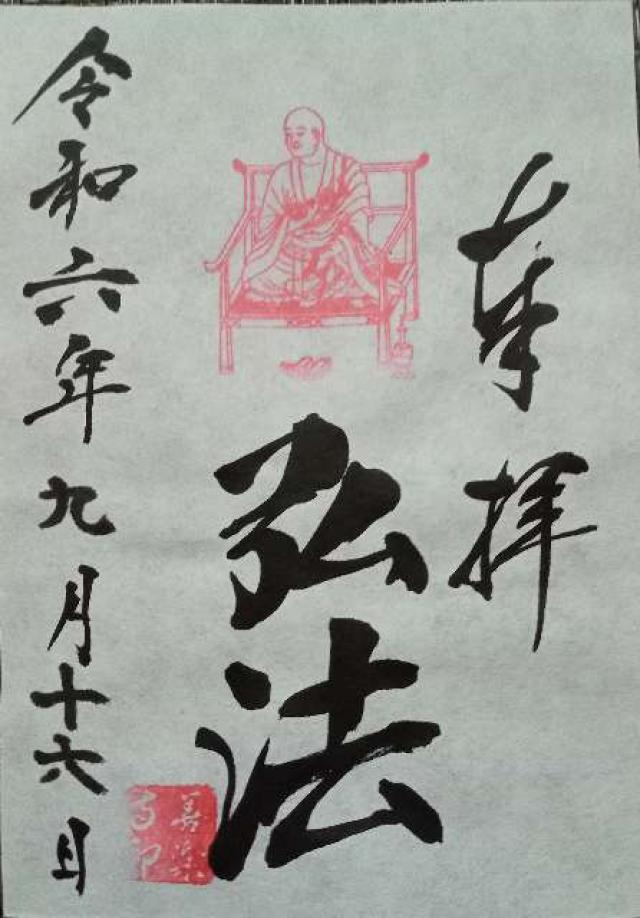 奉拝
弘法
令和六年九月十六日